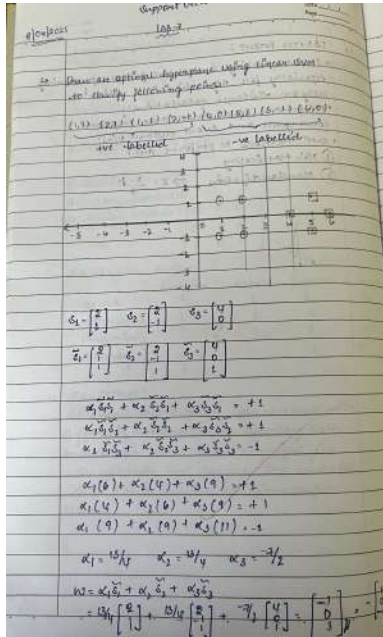 Support
8/04/2025
LAB-7
Draw an optimal hyperplane using linear SVM
to classify following points.
(1,1) (2,1) (1,-1) (2,-1) (4,0) (5,1) (5,-1) (6,0).
+ve labelled -ve labelled
4
3
2
1
-5 -4 -3 -2 -1 0 1 2 3 4 5 6
-1
-2
-3
-4
S₁ = [2 1] S₂ = [2 -1] S₃ = [4 0]
S̃₁ = [2 1 1] S̃₂ = [2 -1 1] S̃₃ = [4 0 1]
α₁S̃₁S̃₁ + α₂S̃₂S̃₁ + α₃S̃₃S̃₁ = +1
α₁S̃₁S̃₂ + α₂S̃₂S̃₂ + α₃S̃₃S̃₂ = +1
α₁S̃₁S̃₃ + α₂S̃₂S̃₃ + α₃S̃₃S̃₃ = -1
α₁(6) + α₂(4) + α₃(9) = +1
α₁(4) + α₂(6) + α₃(9) = +1
α₁(9) + α₂(9) + α₃(17) = -1
α₁ = 13/4 α₂ = 13/4 α₃ = -7/2
w = α₁S̃₁ + α₂S̃₂ + α₃S̃₃
= 13/4 [2 1 1] + 13/4 [2 -1 1] + -7/2 [4 0 1] = [-1 0 3]